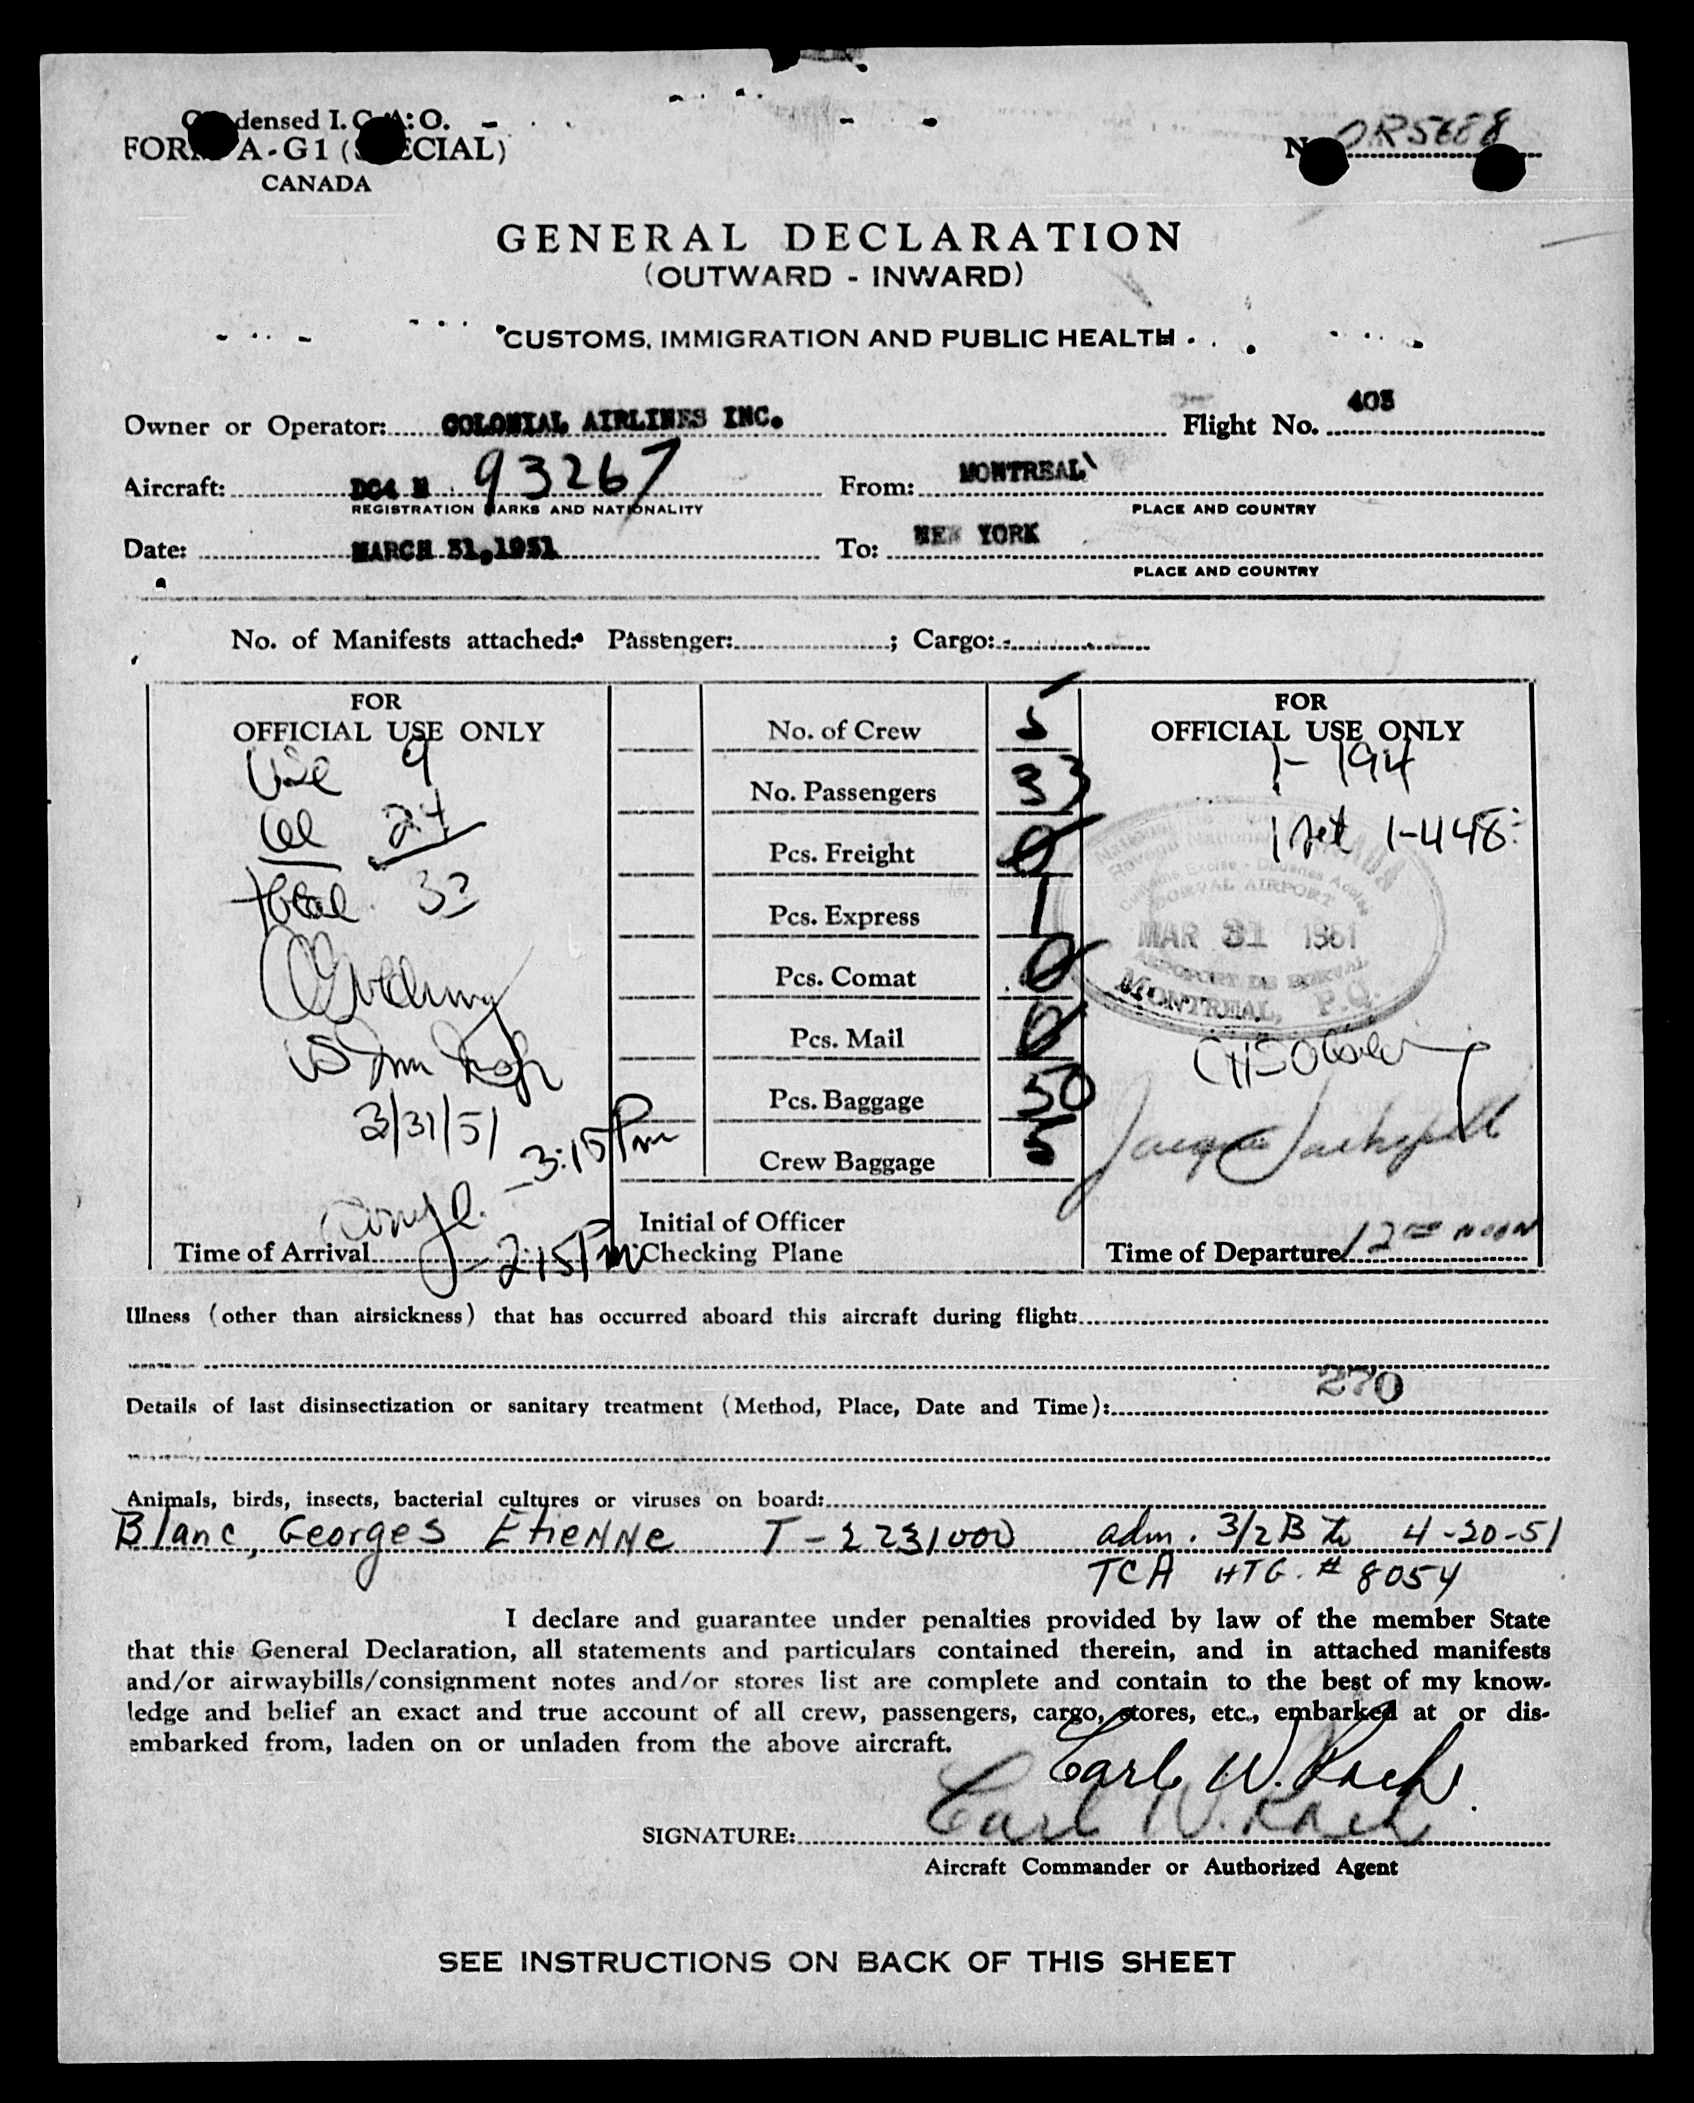 Condensed I.C.A.O.
FORM A-G1 (SPECIAL)
CANADA
No. OR5688
GENERAL DECLARATION
(OUTWARD - INWARD)
CUSTOMS, IMMIGRATION AND PUBLIC HEALTH
Owner or Operator: COLONIAL AIRLINES INC. Flight No. 403
Aircraft: DC4 N 93267 From: MONTREAL
REGISTRATION MARKS AND NATIONALITY PLACE AND COUNTRY
Date: MARCH 31,1951 To: NEW YORK
PLACE AND COUNTRY
No. of Manifests attached: Passenger: ; Cargo:
FOR
OFFICIAL USE ONLY
USC 9
al 24
total 33
3/31/51
3:15 Pm
Time of Arrival 2:15 Pm
No. of Crew 5
No. Passengers 33
Pcs. Freight 0
Pcs. Express 1
Pcs. Comat 0
Pcs. Mail 0
Pcs. Baggage 50
Crew Baggage 5
Initial of Officer
Checking Plane
FOR
OFFICIAL USE ONLY
1- 194
1 set 1-448
DORVAL AIRPORT
MAR 31 1951
AEROPORT DE DORVAL
MONTREAL, P.Q.
Time of Departure 12 00 noon
Illness (other than airsickness) that has occurred aboard this aircraft during flight:
270
Details of last disinsectization or sanitary treatment (Method, Place, Date and Time):
Animals, birds, insects, bacterial cultures or viruses on board:
Blanc, Georges Etienne T-2231000 adm. 3/2B to 4-20-51
TCA HTG. # 8054
I declare and guarantee under penalties provided by law of the member State
that this General Declaration, all statements and particulars contained therein, and in attached manifests
and/or airwaybills/consignment notes and/or stores list are complete and contain to the best of my know-
ledge and belief an exact and true account of all crew, passengers, cargo, stores, etc., embarked at or dis-
embarked from, laden on or unladen from the above aircraft.
Carl W. Rach
SIGNATURE: Carl W. Rach
Aircraft Commander or Authorized Agent
SEE INSTRUCTIONS ON BACK OF THIS SHEET